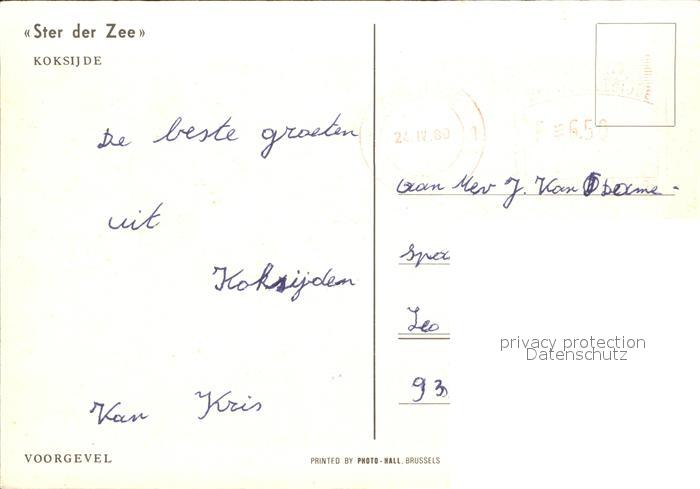 «Ster der Zee»
KOKSIJDE
24.IV.80
De beste groeten
uit
Koksijden
Van Kris
aan Mev J. Van
Leo
93
privacy protection
Datenschutz
VOORGEVEL
PRINTED BY PHOTO-HALL, BRUSSELS